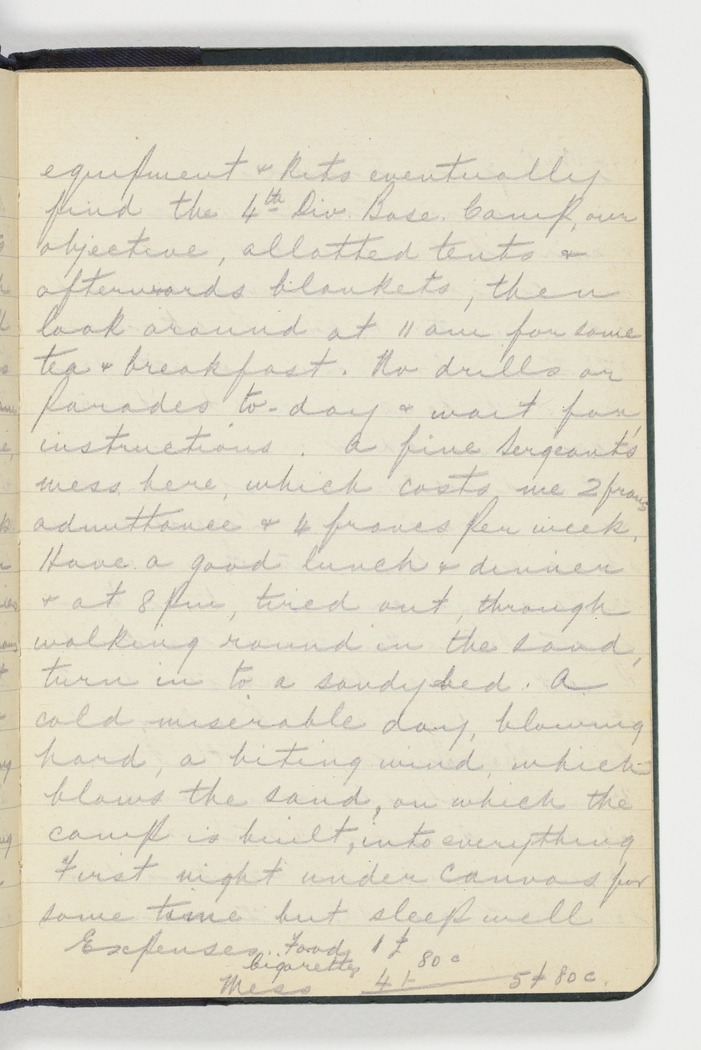 equipment & Kits eventually
find the 4th Div. Base. Camp, our
objective, allotted tents &
afterwards blankets, then
look around at 11 am for some
tea & breakfast. No drills or
Parades to-day & wait for
instructions. A fine Sergeants'
mess here, which costs me 2 francs
admittance & 4 francs per week.
Have a good lunch & dinner
& at 8 pm, tired out, through
walking round in the sand,
turn in to a sandy bed. A
cold miserable day, blowing
hard, a biting wind, which
blows the sand, on which the
camp is built, into everything
First night under Canvas for
some time but sleep well
Expenses.. Food 1 f
Cigarettes 80 c
Mess 4 f 5 f 80 c.